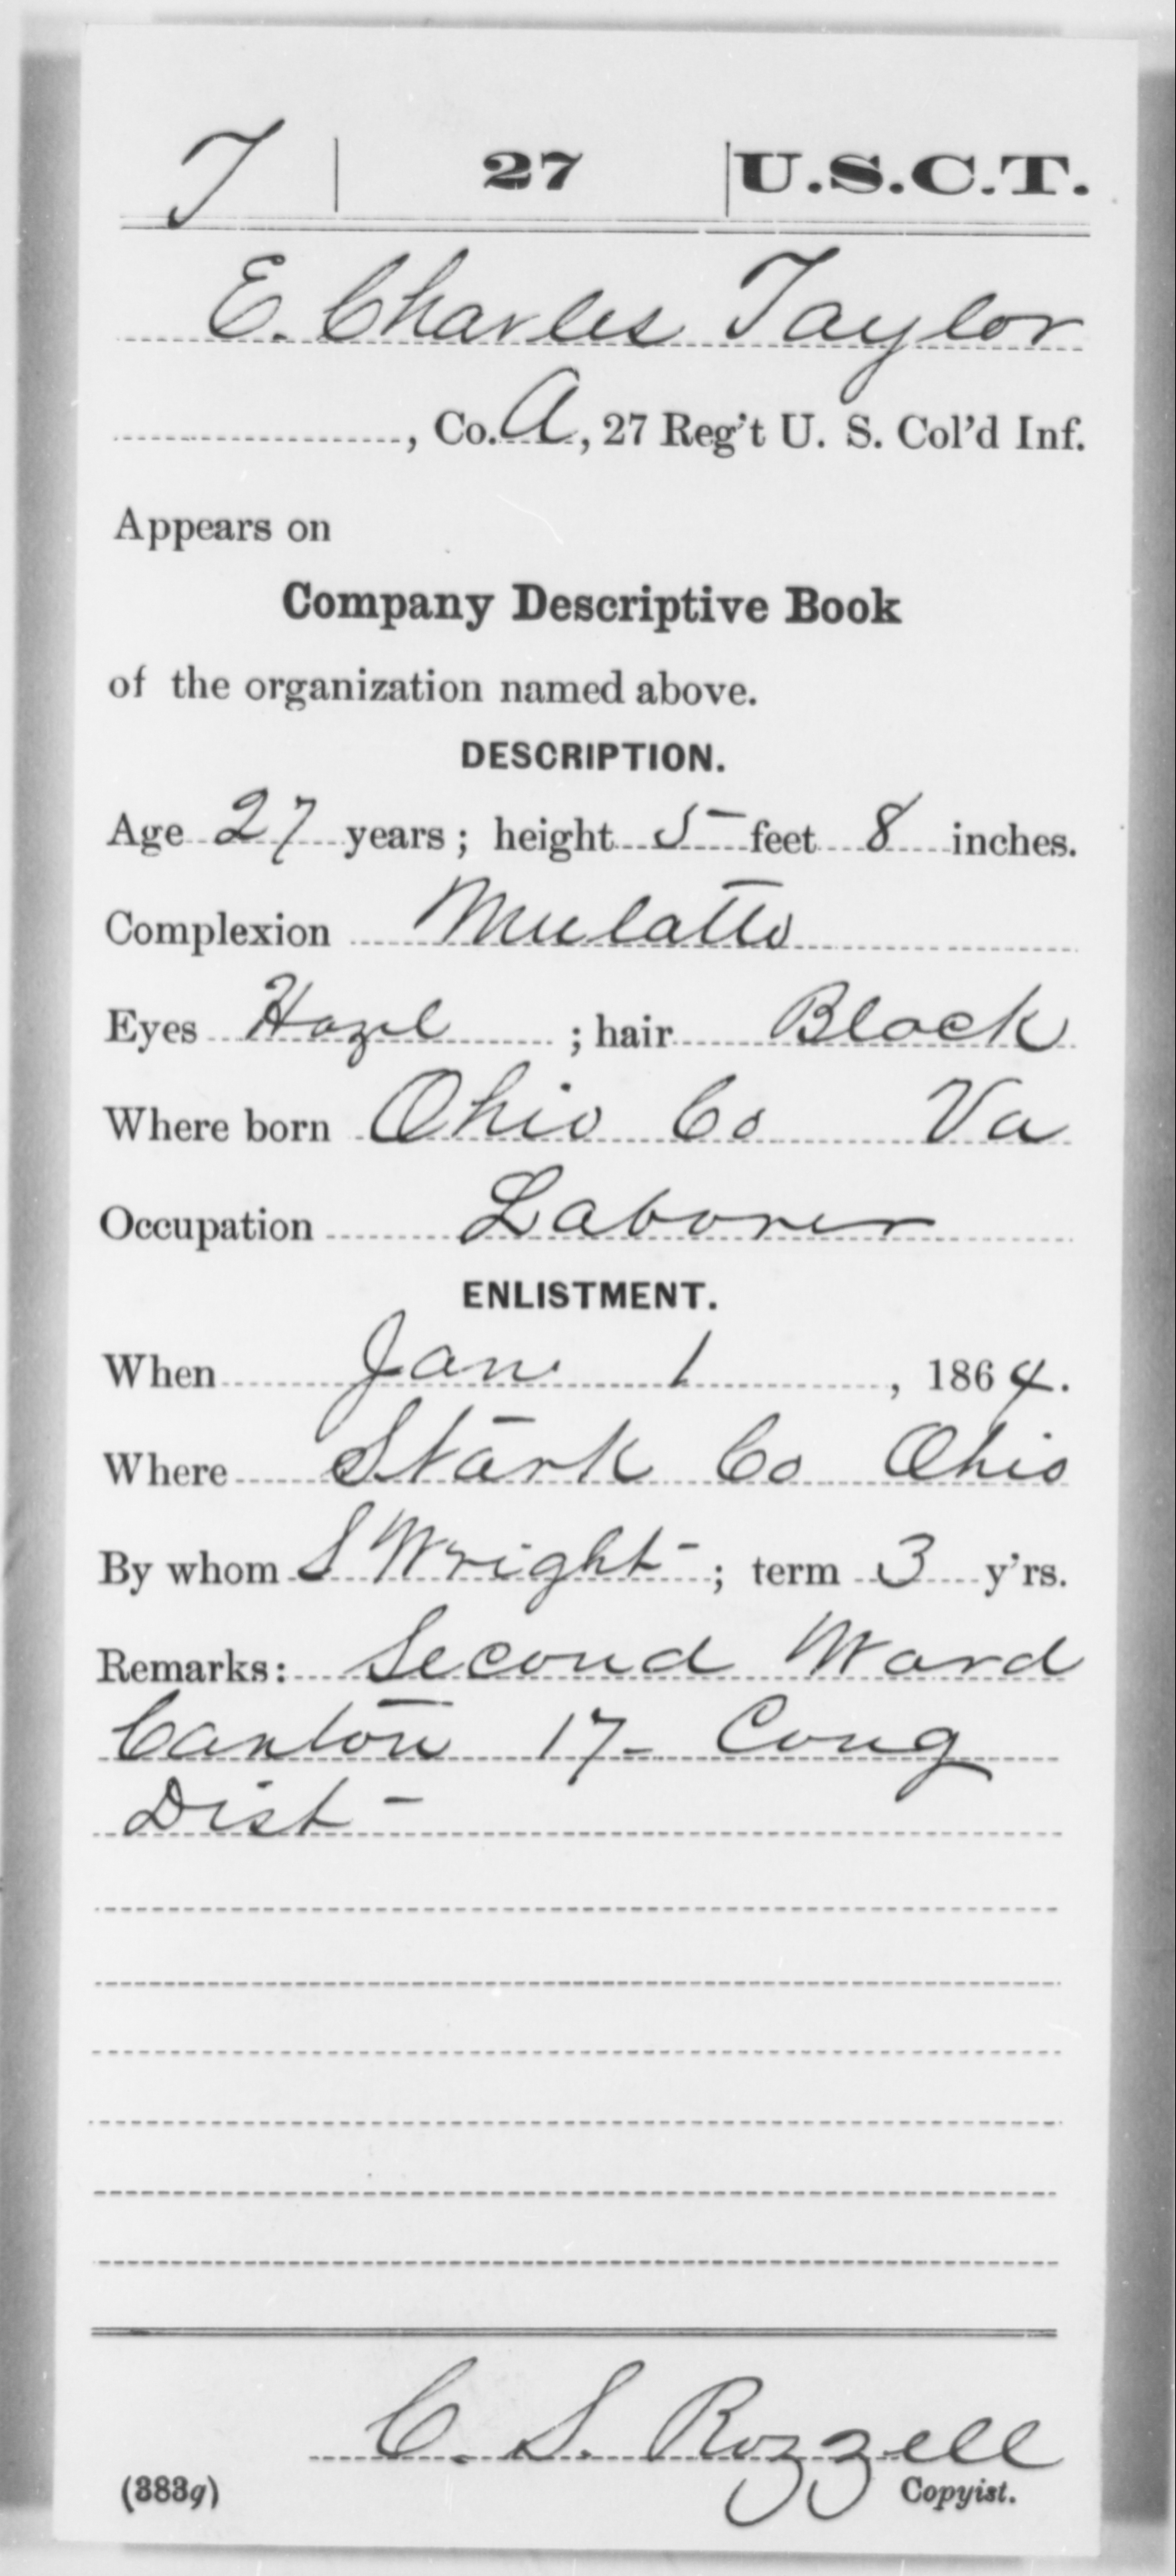 T | 27 | U.S.C.T.
E. Charles Taylor
, Co. A, 27 Reg't U. S. Col'd Inf.
Appears on
Company Descriptive Book
of the organization named above.
DESCRIPTION.
Age 27 years; height 5 feet 8 inches.
Complexion Mulatto
Eyes Hazel ; hair Black
Where born Ohio Co Va
Occupation Laborer
ENLISTMENT.
When Jan 1, 1864.
Where Stark Co Ohio
By whom S Wright; term 3 y'rs.
Remarks: Second Ward
Canton 17 - Cong
Dist -
C. S. Rozzell
(383g) Copyist.